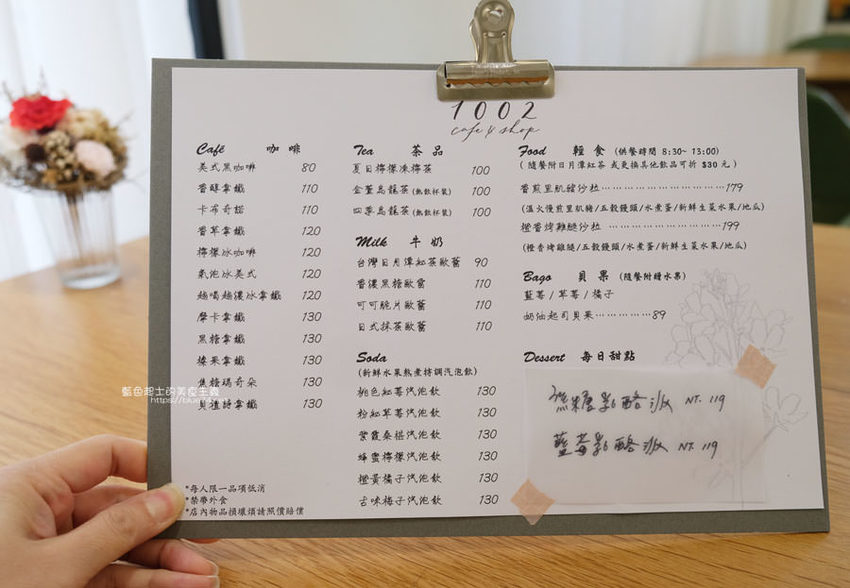 1002
cafe & shop
Café 咖啡
美式黑咖啡 80
香醇拿鐵 110
卡布奇諾 110
香草拿鐵 120
檸檬冰咖啡 120
氣泡冰美式 120
越喝越濃冰拿鐵 120
摩卡拿鐵 130
黑糖拿鐵 130
榛果拿鐵 130
焦糖瑪奇朵 130
貝禮詩拿鐵 130
*每人限一品項低消
*禁帶外食
*店內物品損壞須請照價賠償
Tea 茶品
夏日檸檬凍檸茶 100
金萱烏龍茶(熱飲杯裝) 100
四季烏龍茶(熱飲杯裝) 100
Milk 牛奶
台灣日月潭紅茶歐蕾 90
香濃黑糖歐蕾 110
可可脆片歐蕾 110
日式抹茶歐蕾 110
Soda
(新鮮水果熬煮特調汽泡飲)
桃色紅莓汽泡飲 130
粉紅草莓汽泡飲 130
紫霞桑椹汽泡飲 130
蜂蜜檸檬汽泡飲 130
橙黃橘子汽泡飲 130
古味梅子汽泡飲 130
Food 輕食 (供餐時間 8:30~ 13:00)
(隨餐附日月潭紅茶 或更換其他飲品可折 $30元)
香煎里肌豬沙拉……………………179
(溫火慢煎里肌豬/五穀饅頭/水煮蛋/新鮮生菜水果/地瓜)
橙香烤雞腿沙拉……………………199
(橙香烤雞腿/五穀饅頭/水煮蛋/新鮮生菜水果/地瓜)
Bago 貝果 (隨餐附糖水果)
藍莓/草莓/橘子
奶油起司貝果……………89
Dessert 每日甜點
焦糖乳酪派 NT. 119
藍莓乳酪派 NT. 119
藍色起士的美食主義